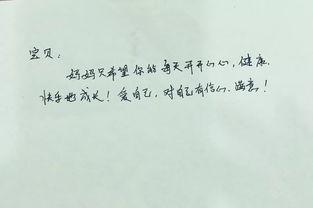 宝贝：
妈妈只希望你能每天开开心心，健康．
快乐地成长！爱自己，对自己有信心．满意！